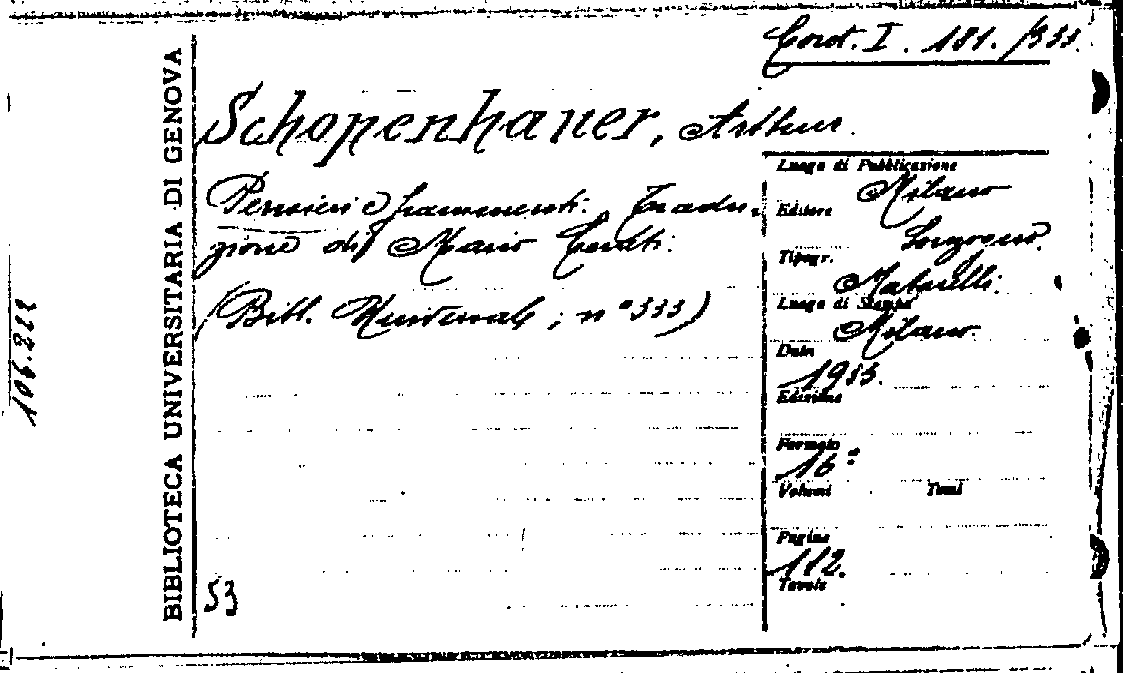 Cord. I. 181. /333.
Schopenhauer, Arthur.
Pensieri e frammenti. Tradu-
zione di Mario Cerati.
(Bibl. Universale; n° 333)
Luogo di Pubblicazione
Milano
Editore
Sonzogno.
Tipogr.
Matarelli.
Luogo di Stampa
Milano.
Data
1933.
Edizione
Formato
16°
Volumi Tomi
Pagine
112.
Tavole
53
BIBLIOTECA UNIVERSITARIA DI GENOVA
106.222